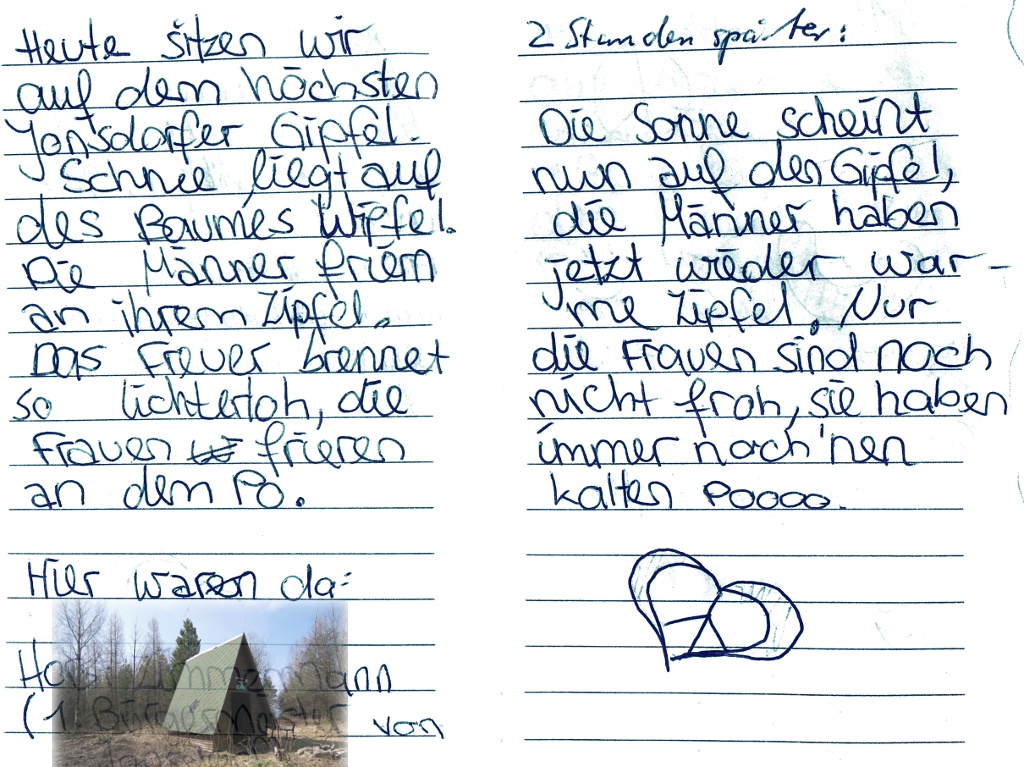 Heute sitzen wir
auf dem höchsten
Jonsdorfer Gipfel.
Schnee liegt auf
des Baumes Wipfel.
Die Männer friern
an ihrem Zipfel.
Das Freuer brennet
so lichterloh, die
Frauen frieren
an dem Po.
Hier waren da:
Zimmermann
(1. Bürgermeister von
2 Stunden später:
Die Sonne scheint
nun auf den Gipfel,
die Männer haben
jetzt wieder war-
me Zipfel. Nur
die Frauen sind noch
nicht froh, sie haben
immer noch 'nen
kalten Poooo.